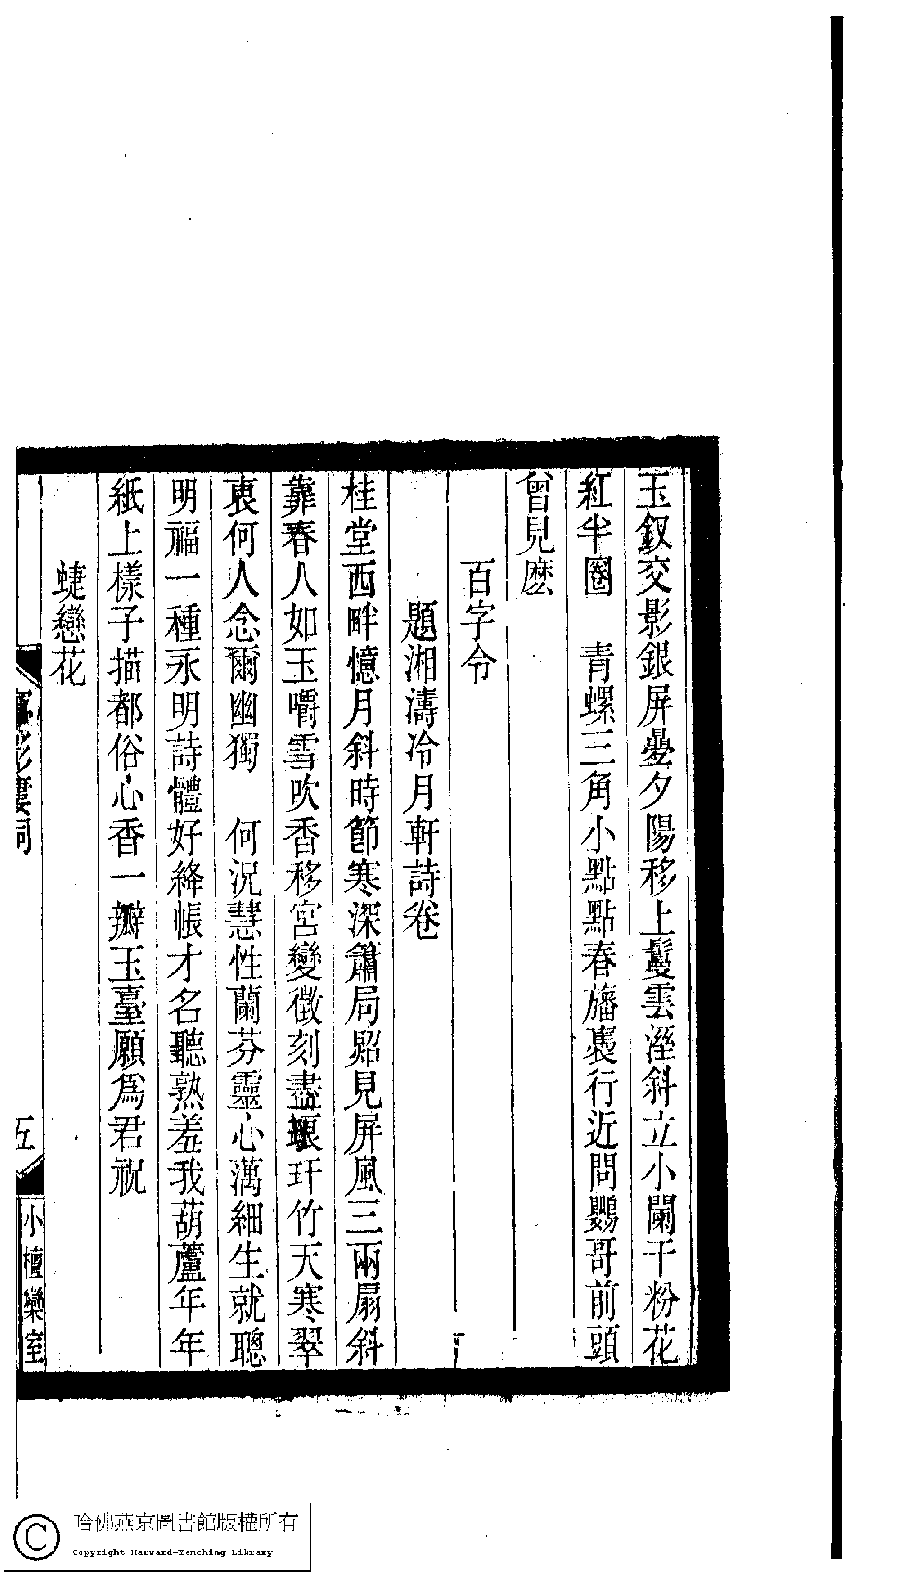 玉釵交影銀屏疊夕陽移上鬟雲溼斜立小闌干粉花
紅半圈　青螺三角小點點春旛裊行近問鸚哥前頭
曾見麽
百字令
題湘濤冷月軒詩卷
桂堂西畔憶月斜時節寒深簫局照見屏風三兩扇斜
靠春人如玉嚼雪吹香移宮變徵刻盡琅玕竹天寒翠
袠何人念爾幽獨　何況慧性蘭芬靈心藕細生就聰
明福一種永明詩體好絳帳才名聽熟羞我葫蘆年年
紙上樣子描都俗心香一瓣玉臺願爲君祝
蜨戀花
影樓詞
五
小檀欒室
哈佛燕京圖書館版權所有
Copyright Harvard-Yenching Library